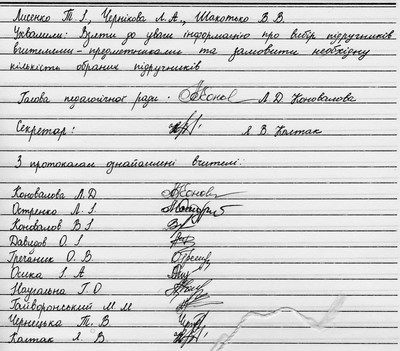 Лисенко Т. І., Чернікова Л. А., Шакотько В. В.
Ухвалили: Взяти до уваги інформацію про вибір підручників
вчителями-предметниками та замовити необхідну
кількість обраних підручників
Голова педагогічної ради: Л. Д. Коновалова
Секретар: Я. В. Колтак
З протоколом ознайомлені вчителі:
Коновалова Л. Д
Остренко Л. І.
Коновалов В. І
Давидов О. І
Греганик О. В.
Осика І. А
Нагиальна Г. О
Гайворонський М. М
Чернецька Т. В.
Колтак Я. В.